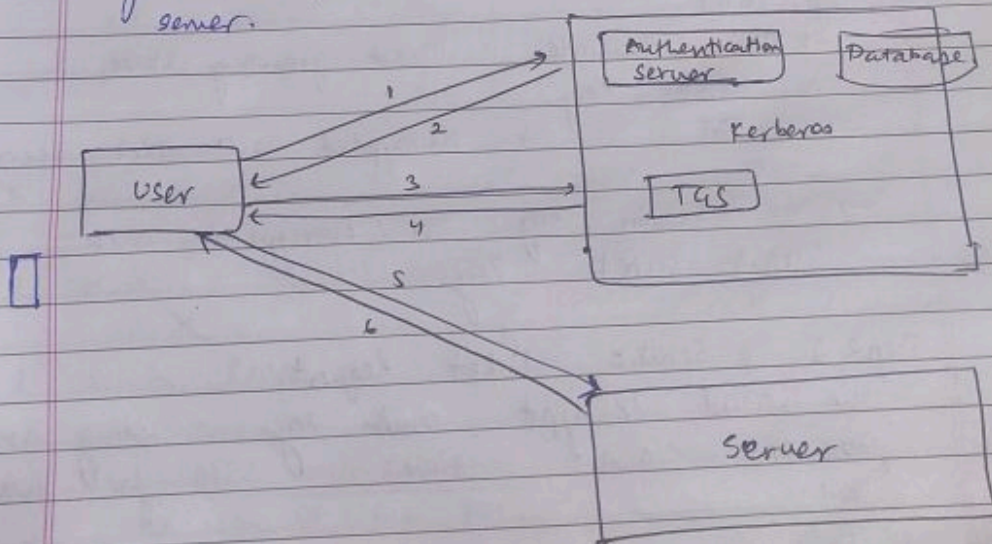 server.
Authentication
Server
Database
1
2
Kerberos
User
3
TGS
4
5
6
Server